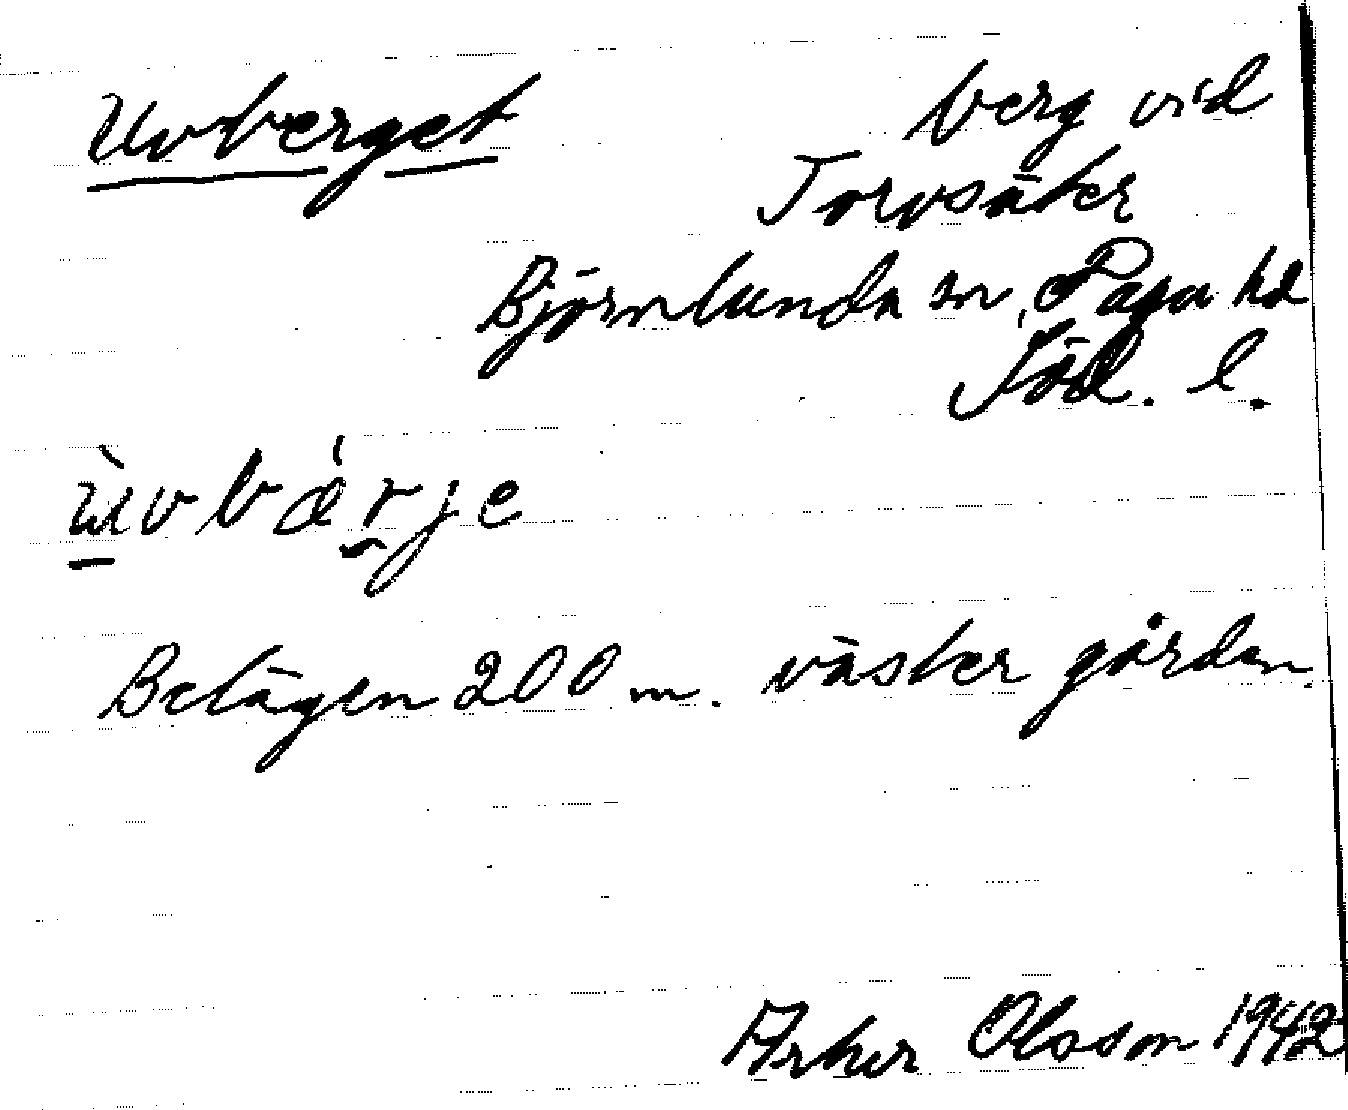 Uvberget berg vid
Torvsäter
Björnlunda sn, Daga hd
Söd. l.
ùvbǽrje
Belägen 200 m. väster gården.
Artur Olsson 1942